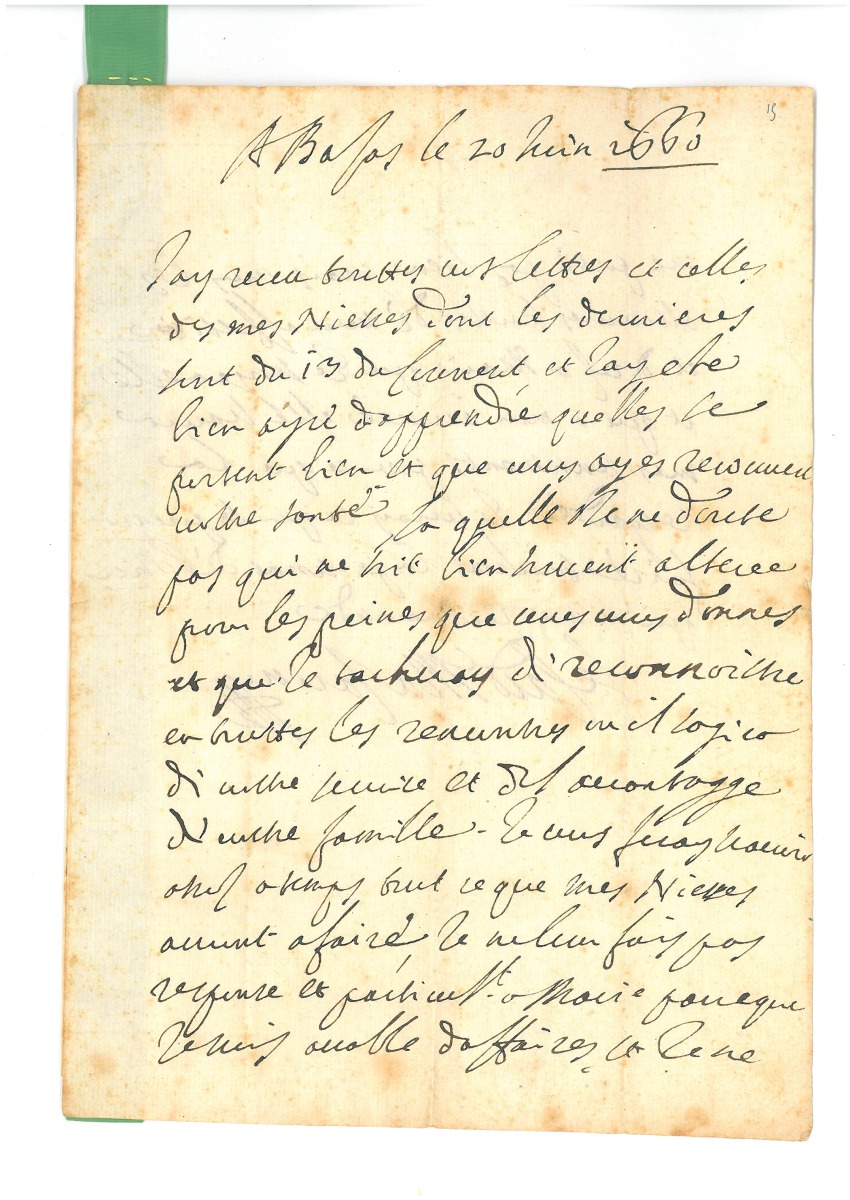 15
A Basas le 20 Juin 1660
J'ay receu touttes vos lettres et celles
des mes Nieces dont les dernieres
sont du 13 du Courrent, et J'ay este
bien ayse d'apprendre quelles se
portent bien et que vous ayes recouuert
vostre santé la quelle Je ne doute
pas qui ne soit bien souuent alteree
pour les peines que vous vous donnes
et que Je tacheray di reconnoistre
en touttes les rencontres ou il s'agira
di vostre et del auantagge
di vostre famille - Je vous feray scauoir
ases a temps tout ce que mes Nieces
auront a faire, Je ne leur fais pas
response et particult. a Marie parceque
Je suis accablé d'affaires, et Je ne